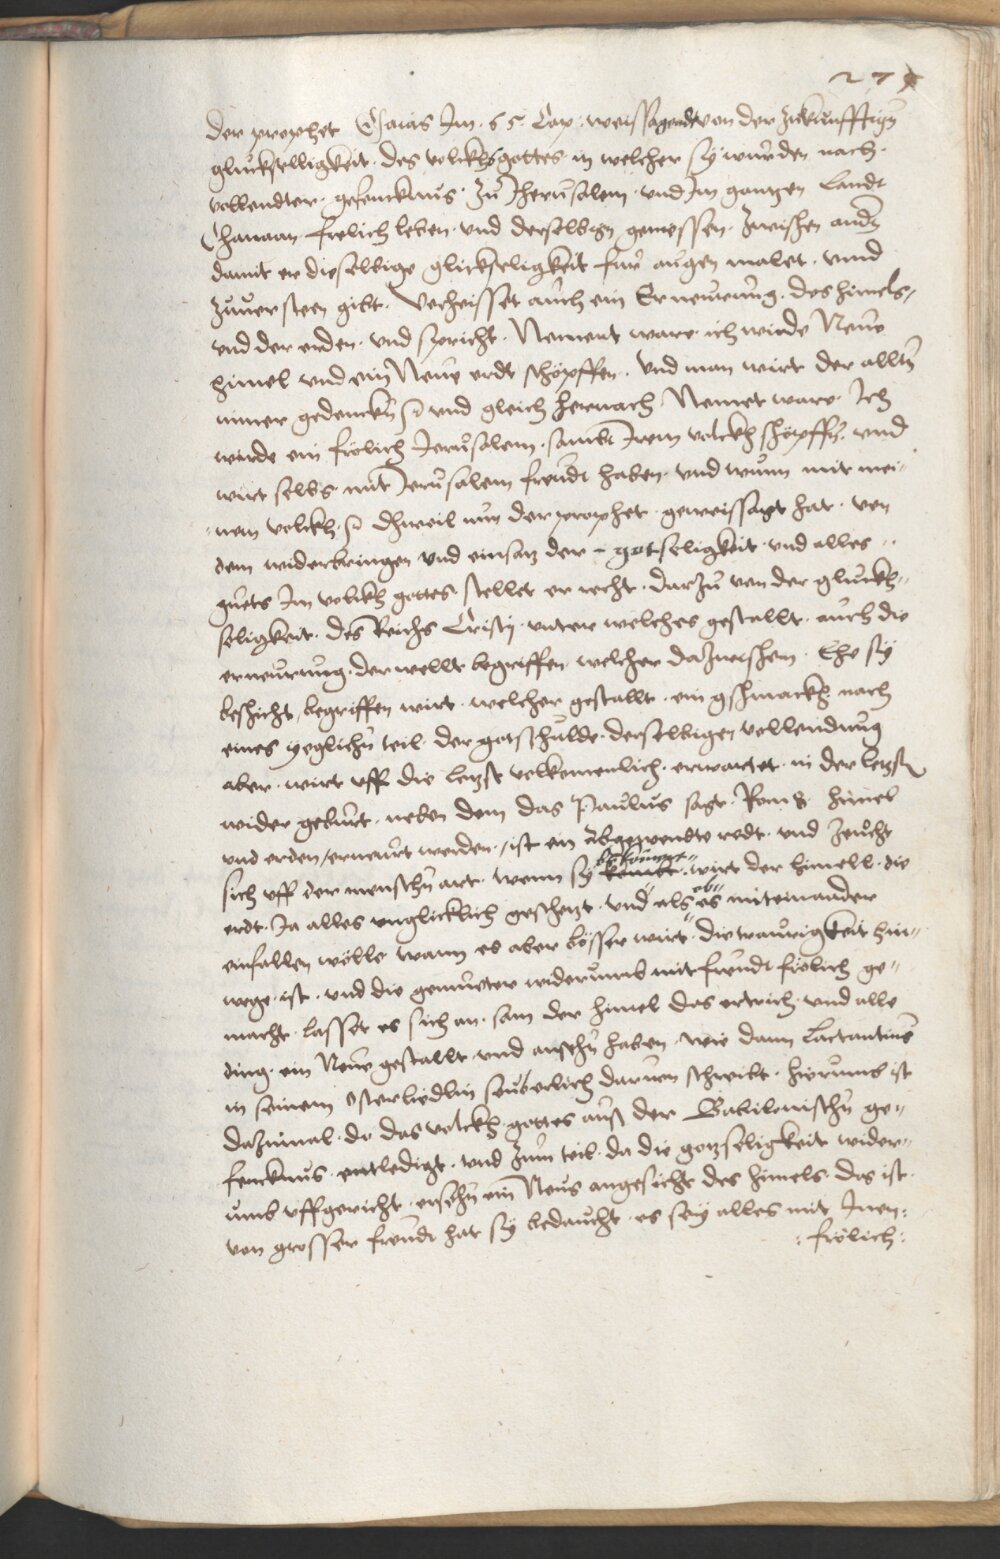 279
der prophet Esaias Im. 65. Cap. weissagendt von der zukunfftign
glückselligkeit. des volckhs gottes in welcher sy wurden nach.
vollendter. gefencknus. zu Jherusalem. und Im gantzen Landt
Chanaan frelich leben. und derselbign geniessen. zwischen andr
damit er dieselbige glickseligkeit fur augen malet. unnd
zuuersteen gibt. Verheisset auch ein Erneurung. des himels,
und der erden. und spricht. Nement ware ich wirde Neue
himel und ein Neue erdt schöpffen. und man wirt der alltn
nimer gedenckhn und gleich hernach Nemet ware. Ich
wirde ein frölich Jerusalem. sambt Irem volckh schöpffn. und
wirt selbs mit Jerusalem freudt haben. und wunn mit mei-
nem volckh. dhweil nun der prophet. geweissagt hat. von
dem widerbringen und einsatz der - gotseligkeit. und alles
guets Im volckh gottes stellet er recht. darzu von der gluckh-
seligkeit. des Reichs Cristy. unter welches gestallt. auch die
erneurung. der wellt begriffen. welcher dazwischen. Ehe sy
beschicht, begriffen wirt. welcher gestallt. ein gschmackh nach
eines yeglichn teil. der gotschulde. derselbigen vollendung
aber. wirt uff die letzst volkomenlich. erwartet. in der letzstn
wider geburt. neben dem das Paulus sagt. Rom 8. himel
und erden, erneurt werden., ist ein abgewendte redt. und zeucht
sich uff der menschn art. wenn sy bekümert wirt der himell. die
erdt. Ja alles unglicklich geschetzt. und als ob es miteinander
einfallen wölle wann es aber besser wirt. die traurigkeit hin-
wege. ist. und die gemueter widerumb mit freudt frölich ge-
macht. lasset es sich an. sam der himel das ertrich. und alle
ding. ein Neue gestallt. und ansehn haben. wie dann Lactantius
in seinem Osterliedlin seuberlich daruon schreibt. hierumb ist
dazumal. do das volckh. gottes auß der Babilonischn ge-
fencknus. entledigt. und zum teil. da die gotseligkeit wider-
umb uffgericht. ersehn ein Neus angesicht des himels. das ist.
von grosser freudt hat sy bedaucht. es sey alles mit Inen:
: frölich: